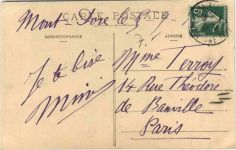 Mont-Dore le
CARTE POSTALE
CORRESPONDANCE
Je te bise
Mimi
Mme Terroy
14 Rue Théodore
de Banville
Paris